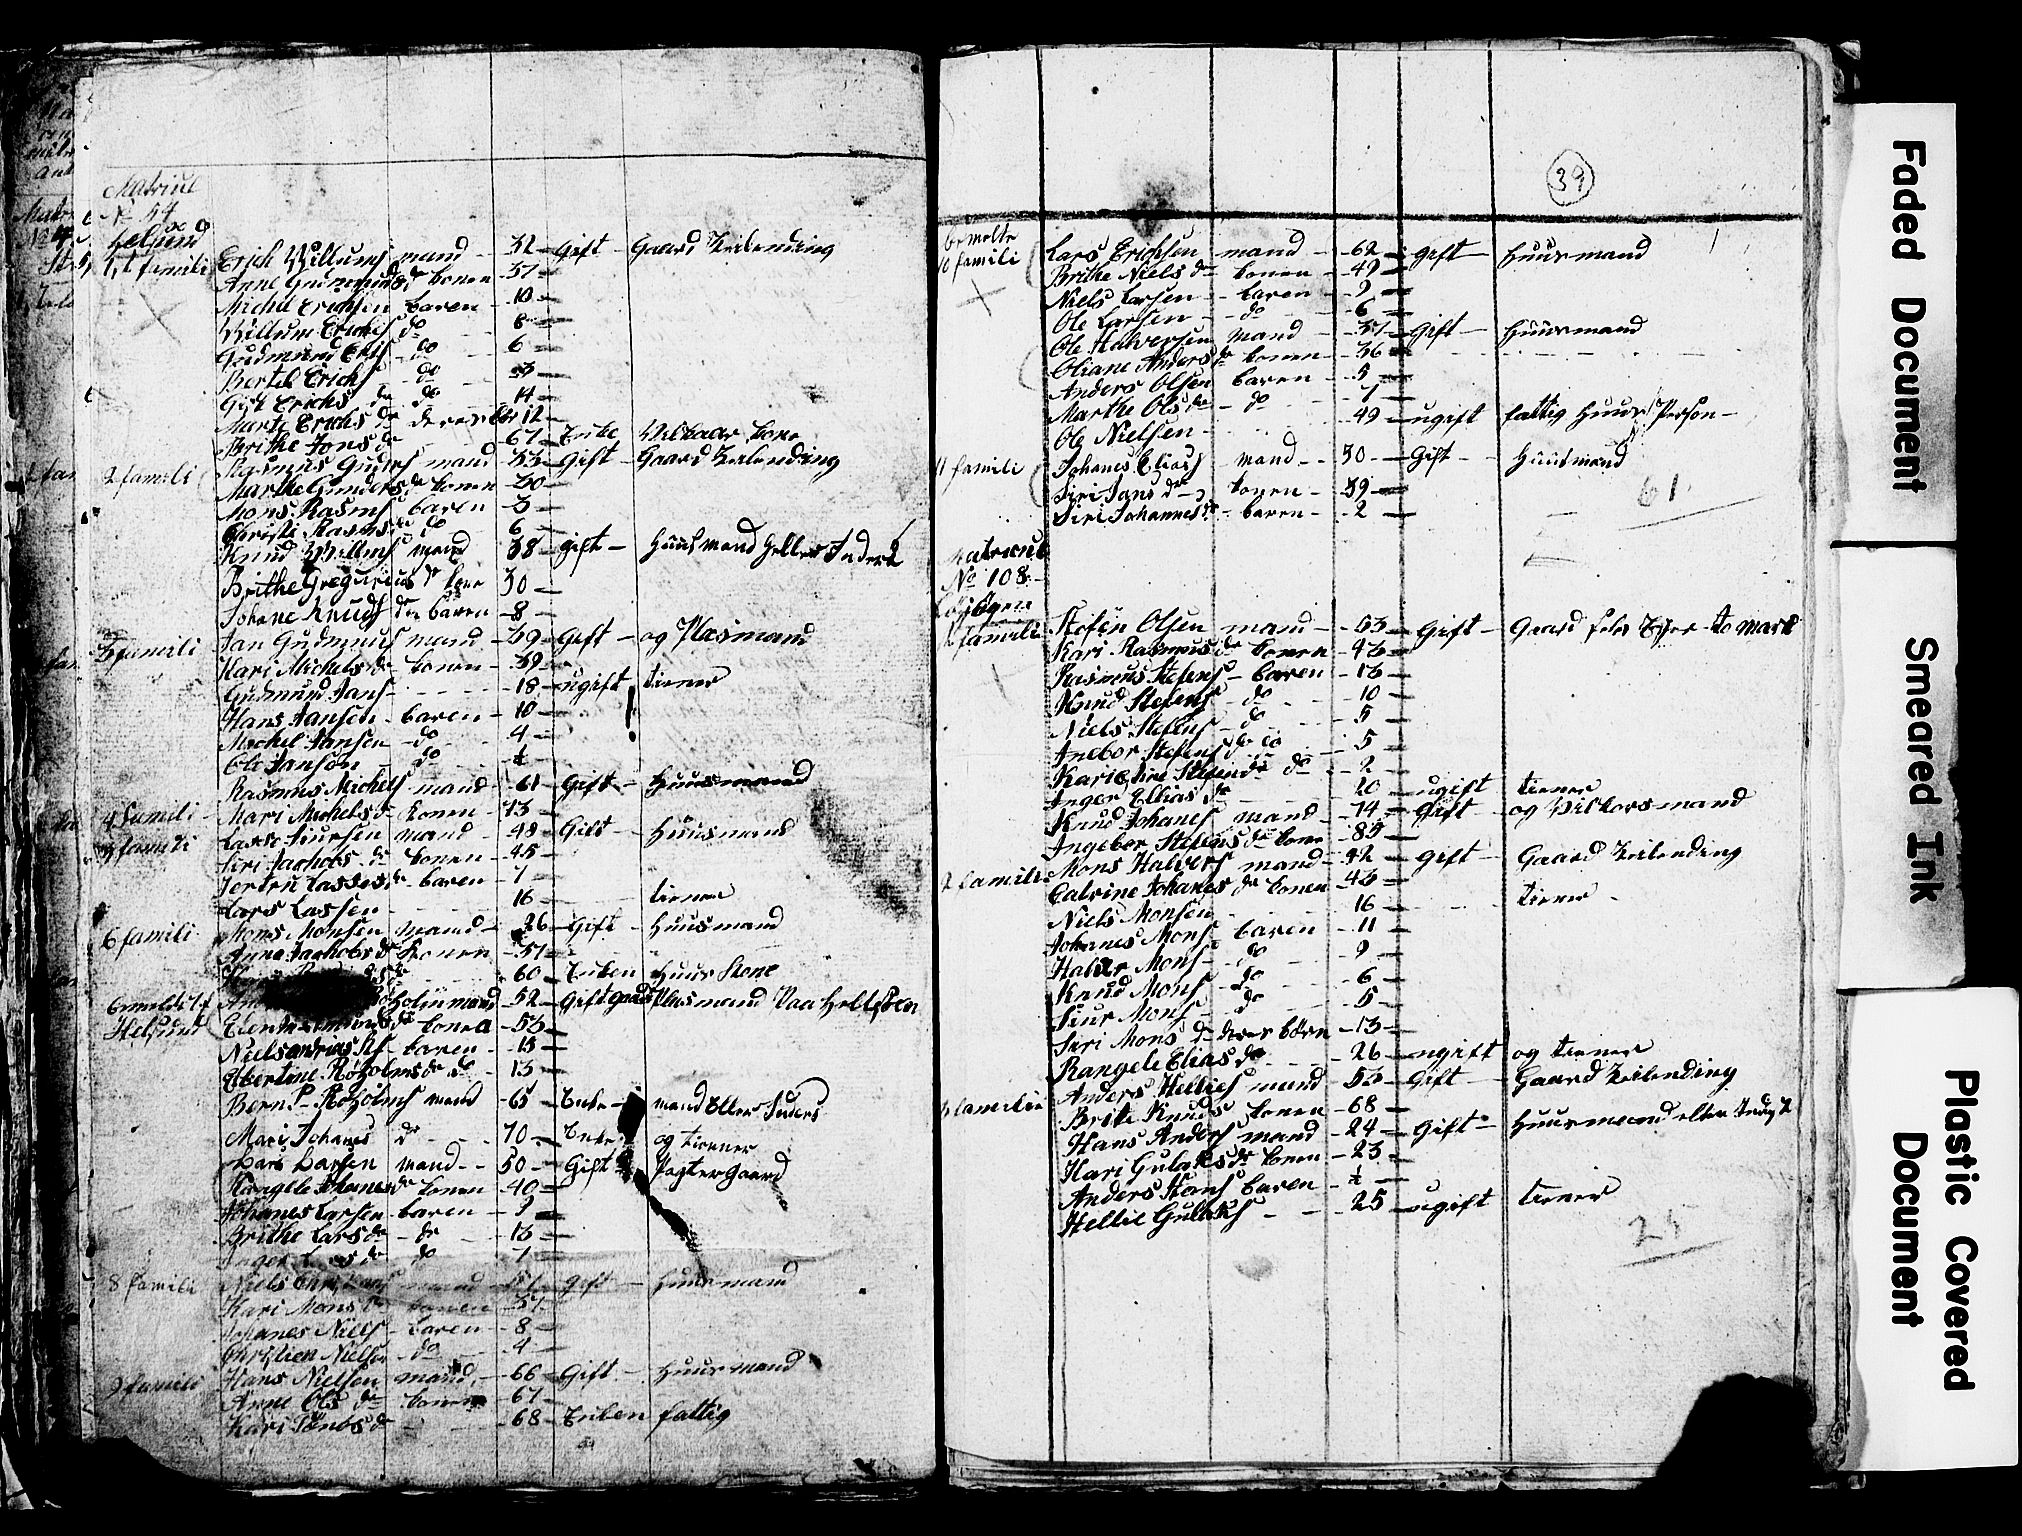 Matricul
No 54
Helsund
1st famili Erich Willums mand 32 Gift Gaard Leilending
Anne Gudmunds dr konen 37
Michel Erichsen baren 10
Willum Erichs do 8
Gudmund Erichs do 6
Bertel Erichs do
Girt Erichs dr do 14
Marte Erichs dr deres 12
Brithe Jons dr 67 Enke Vilkaar kone
2 famili Rasmus mand 33 Gift Gaard Leilending
Marthe Gunders dr konen 30
Mons Rasms baren 3
Christi Rasms dr do 6
Knud Willums mand 38 gift Huusmand Heller Inderst
Brithe Gregorius dr kone 30
Johane Knuds dr baren 8
3 famili Jan Gudmunds mand 39 Gift og Plasmand
Kari Michels dr konen 39
Gudmund Jans 18 ugift tiener
Hans Jansen baren 10
Michel Jansen do 4
Ole Janson do
Rasmus Michels mand 61 Gift Huusmand
4 famili Mari Michels dr konen 73
famili Lasse Siursen mand 48 Gift Huusmand
Siri Jachobs dr konen 45
Jertru Lasses dr baren 7
Lars Lassen 16 tiener
6 famili Mons Monsen mand 26 Gift Huusmand
Anna Jachobs dr konen 37
60 Enken Huus kone
mand 52 Gift Plasmand
Helsund konen 53
Niels baren 15
do 13
Bern P. mand 65 Enke mand Eller Inders
Mari Johans dr 70 Enke og tiener
Lars Larsen mand 50 Gift Pagter gaard
Rangele Johanes dr konen 40
Johanes Larsen baren 9
Brithe Lars dr do 13
Inger Lars dr do 7
8 famili Niels mand Gift Huusmand
Kari Mons dr konen 37
Johanes Niels baren 8
Christien Nielsen do 4
9 famili Hans Nielsen mand 66 Gift Huusmand
Anne Ols dr konen 67
Kari dr 68 Enken fattig
39
bemelte
10 famili Lars Erichsen mand 62 gift Huusmand
Brithe Niels dr konen 49
Niels Larsen baren 9
Ole Larsen do 6
Ole Halversen mand 37 gift Huusmand
Oliane Anders dr konen 36
Anders Olsen baren 5
Marthe Ols dr do 7
Ole Nielsen 49 ugift fattig Huus Person
11 famili Johanes Elias mand 30 Gift Huusmand
Siri Jans dr konen 39
Siri Johannes dr baren 2
61
Matricul
No 108
1 famili Stefen Olsen mand 53 Gift Gaard
Kari Rasmus dr konen 43
Rasmus Stefens baren 13
Knud Stefens do 10
Niels Stefens do 5
Inebor Stefens dr do 5
Stefens dr do 2
Inger Ellias dr 20 ugift tiener
Knud Johanes mand 74 Gift og Vilkorsmand
Ingebor Stefens dr kone 85
2 famili Mons Halvers mand 42 gift Gaard Leilending
Catrine Johanes dr konen 43
Niels Monsen 16 tiener
Johanes Mons baren 11
Halver Mons do 9
Knud Mons do 6
Siur Mons do 5
Siri Mons dr deres börn 13
Rangele Elias dr 26 ugift og tiener
famili Anders Hellies mand 53 Gift Gaard Leilending
Brite Knuds konen 68
Hans Anders mand 24 Gift Huusmand eller
Kari Gulaks dr konen 23
Anders Hans baren ½
Hellie Gulaks 25 ugift tiener
25
Faded Document
Smeared Ink
Plastic Covered
Document